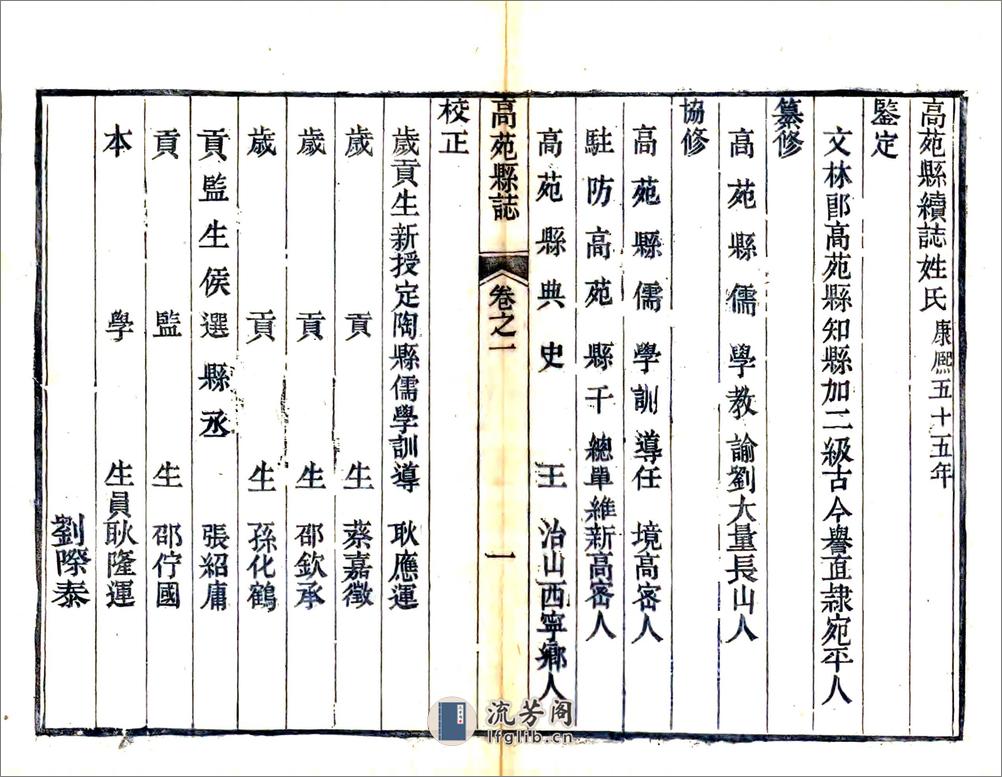 高苑縣續誌姓氏康熙五十五年
鑒定
文林郎高苑縣知縣加二級古今譽直隸宛平人
纂修
高苑縣儒學教諭劉大量長山人
協修
高苑縣儒學訓導任境高密人
駐防高苑縣千總單維新高密人
高苑縣典史王治山西寧鄉人
高苑縣誌卷之一 一
校正
歲貢生新授定陶縣儒學訓導耿應運
歲貢生蔡嘉徵
歲貢生邵欽承
歲貢生孫化鶴
貢監生候選縣丞張紹庸
貢監生邵佇國
本學生員耿隆運
劉際泰
流芳阁
lfglib.cn